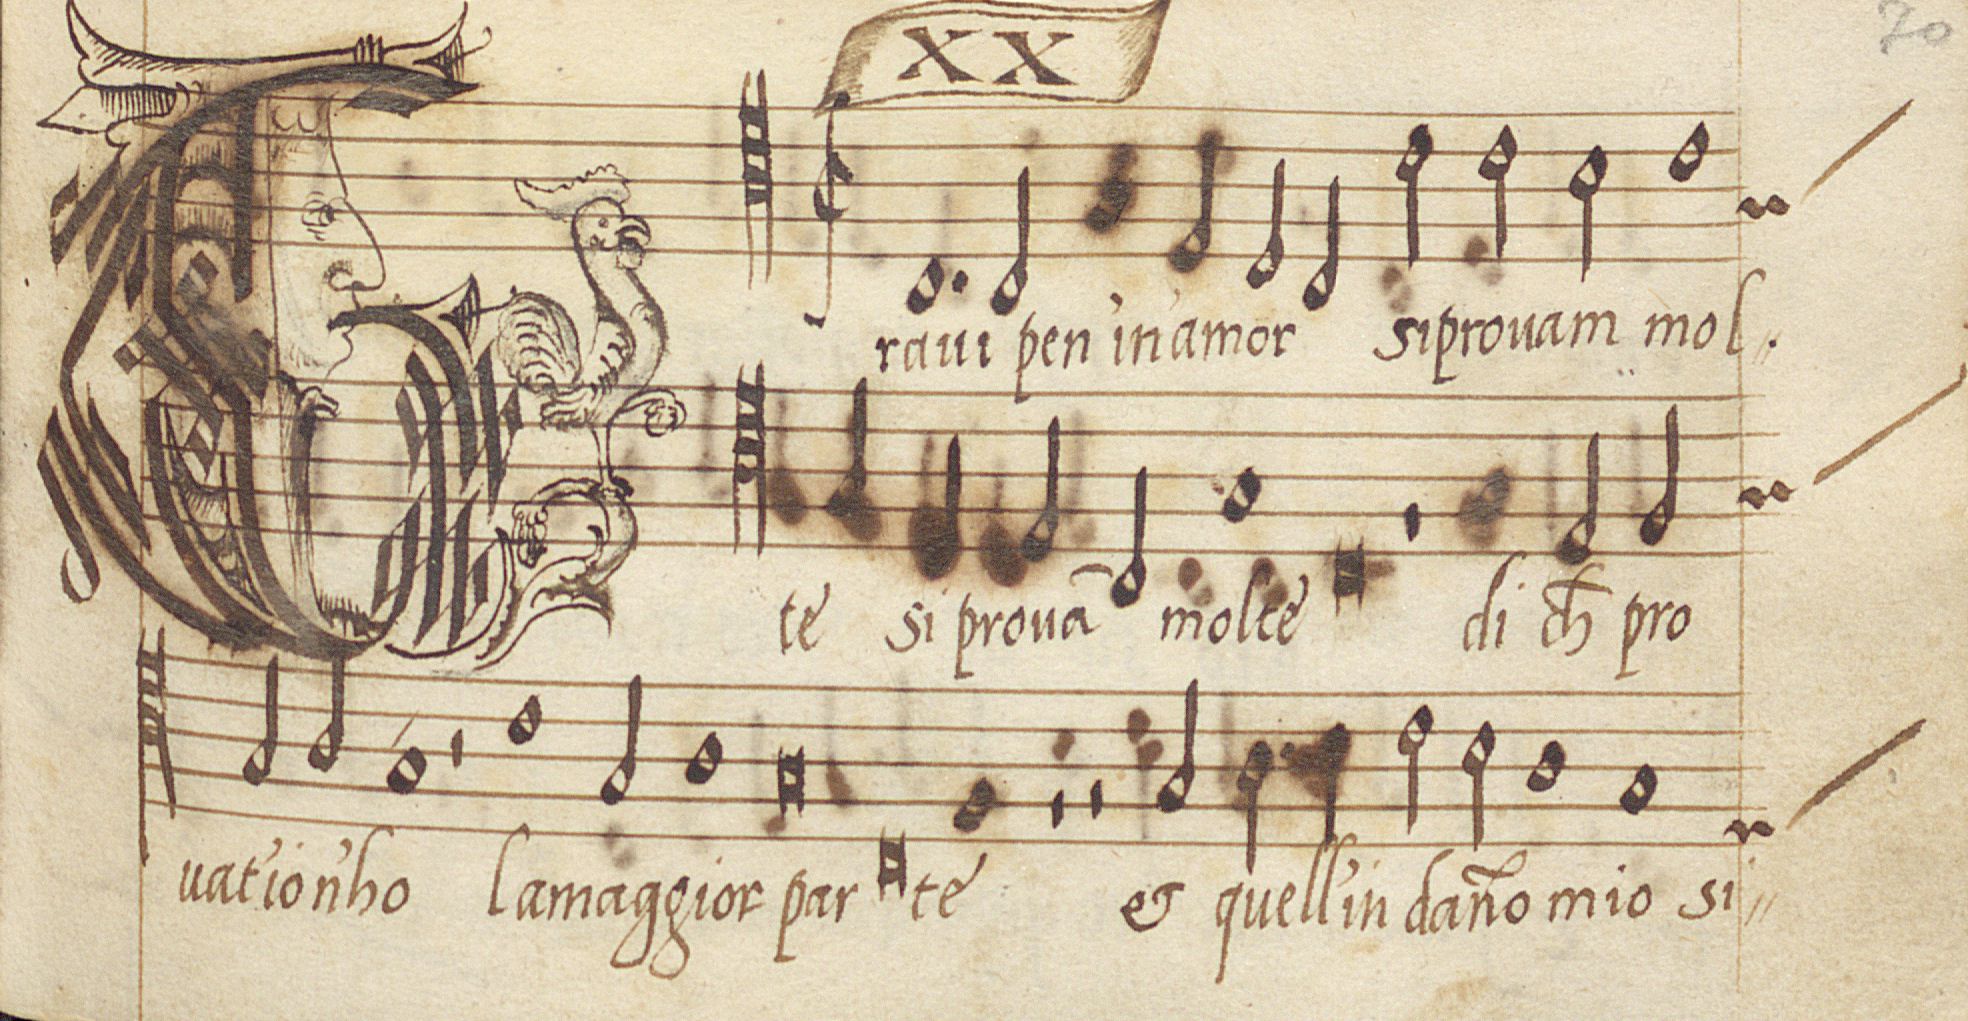 XX
70
G
raui pen in amor si prouam mol
te si prouā molte di ch pro
uat'io n'ho la maggior par te
et quell'in dan̄o mio si